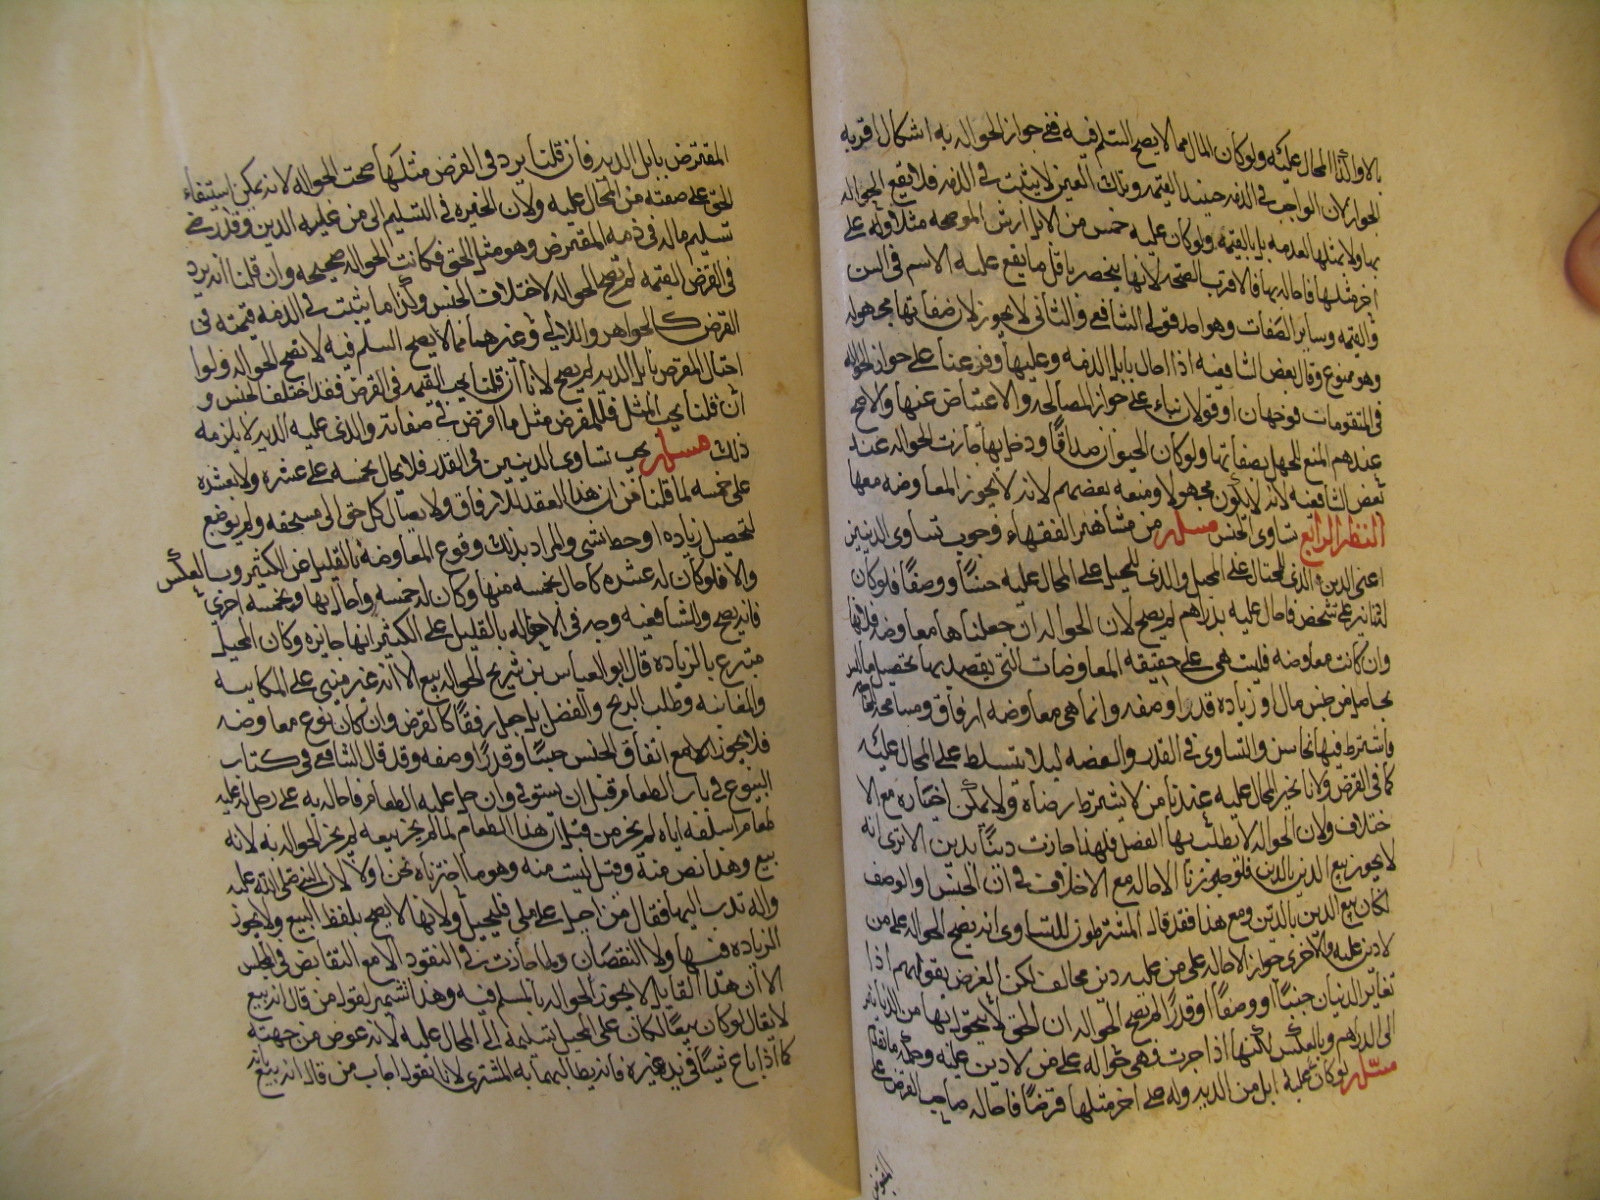 بالاداء الى المحال عليه ولو كان المال مما لا يصح السلم فيه ففي جواز الحواله به اشكال اقربه
الجواز لان الواجب في الذمه حينئذ القيمه وتلك العين لا يثبت في الذمه فلا يقع الحواله
بها ولا بمثلها لعدمه بل بالقيمه ولو كان عليه خمس من الابل ارش الموضحه مثلا وله على
اخر مثلها فاحاله بها فالاقرب الصحه لانها ينحصر باقل ما يقع عليه الاسم في السن
والقيمه وساير الصفات وهو احد قولي الشافعي والثاني لا يجوز لان صفاتها مجهوله
وهو ممنوع وقال بعض الشافعيه اذا احال بابل الديه وعليها وفرعنا على جواز الحواله
في المتقومات فوجهان او قولان بناء على جواز المصالحه والاعتياض عنها والاصح
عندهم المنع للجهل بصفاتها ولو كان الحيوان صداقا ودخل بها جازت الحواله عند
بعض الشافعيه لانه لا يكون مجهولا ومنعه بعضهم لانه لا يجوز المعاوضه معها
النظر الرابع تساوى الجنس مسئله من مشاهير الفقهاء وجوب تساوى الدينين
اعنى الدين الذى للمحتال على المحيل والذى للمحيل على المحال عليه جنسا ووصفا فلو كان
له دنانير على شخص فاحال عليه بدراهم لم يصح لان الحواله ان جعلناها معاوضه فلانها
وان كانت معاوضه فليست هى على حقيقه المعاوضات التى يقصد بها تحصيل ما ليس
بحاصل من جنس مال او زياده قدر او صفه وانما هى معاوضه ارفاق ومسامحه للحاجه
فاشترط فيها التجانس والتساوى في القدر والصفه ليلا يتسلط على المحال عليه
كما في القرض ولانا نجبر المحال عليه عند من لا يشترط رضاه ولا يمكن اجباره مع الا
ختلاف ولان الحواله لا يطلب بها الفضل فلهذا جازت دينا بدين الا ترى انه
لا يجوز بيع الدين بالدين فلو جوزنا الاحاله مع الاختلاف في الجنس او الوصف
لكان بيع الدين بالدين ومع هذا فقد قال المشترطون للتساوى انه يصح الحواله على من
لا دين عليه والاحرى جواز الاحاله على من عليه دين مخالف لكن الغرض بقولهم اذا
تغاير الدينان جنسا او وصفا او قدرا لم يصح الحواله ان الحق لا يتحول بها من الدنانير
الى الدراهم وبالعكس لكنها اذا جرت فهى حواله على من لا دين عليه وحكمه ما تقدم
مسئله لو كان عليه ابل من الديه وله على اخر مثلها قرضا فاحاله صاحب القرض على
المقترض
المقترض بابل الديه فان قلنا يرد في القرض مثلها صحت الحواله لانه يمكن استيفاء
الحق على صفته من المحال عليه ولان الخيره في التسليم الى من عليه الدين وقد رضى
تسليم ماله في ذمه المقترض وهو مثل الحق فكانت الحواله صحيحه وان قلنا انه يرد
في القرض القيمه لم تصح الحواله لاختلاف الجنس وكذا ما يثبت في الذمه قيمته في
القرض كالجواهر واللآلي وغيرهما مما لا يصح السلم فيه لا تصح الحواله ولو
احتال المقرض بابل الديه لم يصح لانا ان قلنا يجب القيمه في القرض فقد اختلف الجنس و
ان قلنا يجب المثل فللمقرض مثل ما اقرض في صفاته والذى عليه الديه لا يلزمه
ذلك مسئله يجب تساوى الدينين في القدر فلا يحال بخمسه على عشره ولا بعشره
على خمسه لما قلنا من ان هذا العقد للارفاق ولايصال كل حق الى مستحقه ولم يوضع
لتحصيل زياده او حط شى والمراد بذلك وقوع المعاوضه بالقليل عن الكثير وبالعكس
والا فلو كان له عشره فاحال بخمسه منها او كان له خمسه واحال بها وبخمسه اخرى
فانه يصح وللشافعيه وجه في الاحاله بالقليل على الكثير انها جايزه وكان المحيل
متبرع بالزياده قال ابو العباس بن شريح الحواله بيع الا انه غير مبنى على المكايسه
والمغابنه وطلب الربح والفضل بل جعل رفقا كالقرض وان كان نوع معاوضه
فلا يجوز الا مع اتفاق الجنس جنسا وقدرا وصفه وقد قال الشافعى في كتاب
البيوع في باب الطعام قبل ان يستوفى وان حل عليه الطعام فاحال به على رجل له عليه
طعام اسلفه اياه لم يجز من قبل ان هذا الطعام لما لم يجز بيعه لم يجز الحواله به لانه
بيع وهذا نص منه وقيل ليست منه وهو ما اخترناه نحن اولا لان النبى صلى الله عليه
واله ندب اليها فقال من احيل على ملى فليحتل ولانها لا يصح بلفظ البيع ولا يجوز
الزياده فيها ولا النقصان ولما جازت في النقود الا مع التقابض في المجلس
الا ان هذا القايل لا يجوز الحواله بالمسلم فيه وهذا تشمير لقول من قال انه بيع
لا يقال لو كان بيعا لكان على المحيل تسليمه الى المحال عليه لانه عوض من جهته
كما اذا باع شيئا في يد غيره فانه يطالبهما به المشترى لانا نقول اجاب من قال انه بيع بانه